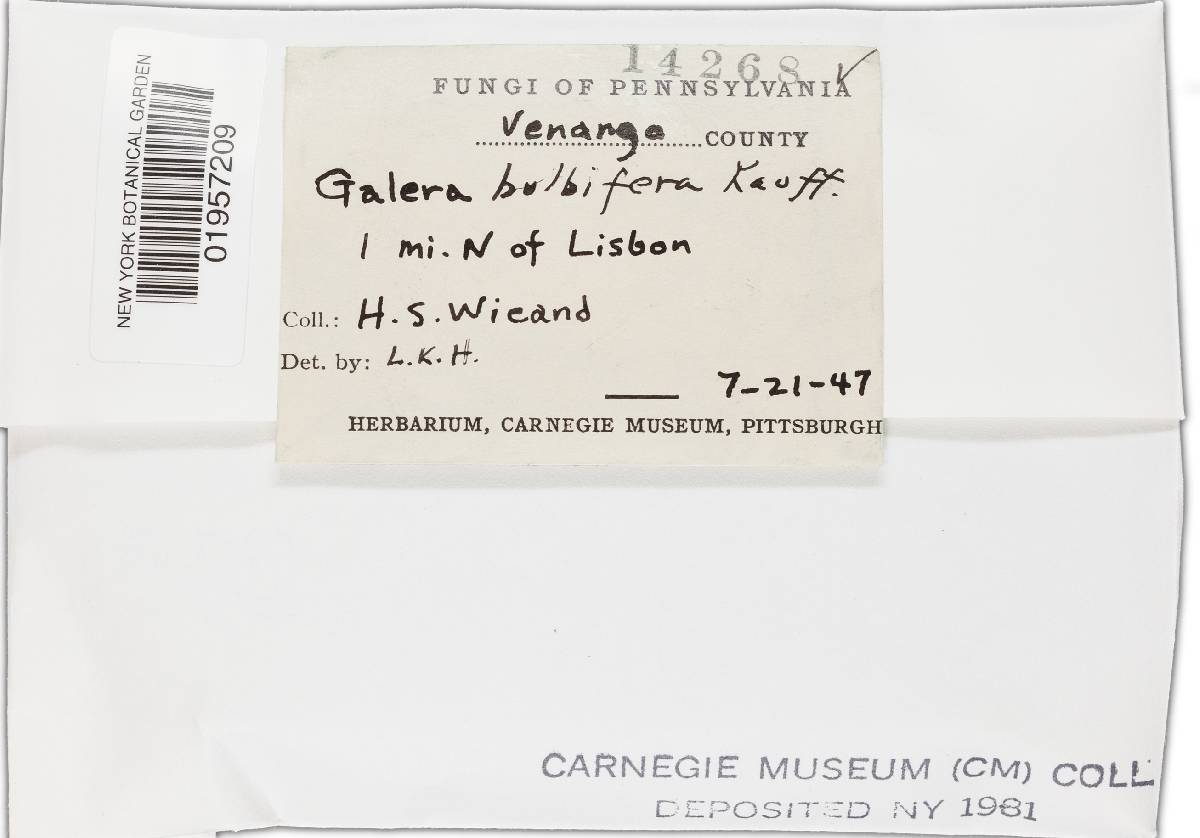 NEW YORK BOTANICAL GARDEN
01957209
14268
FUNGI OF PENNSYLVANIA
Venango COUNTY
Galera bulbifera Kauff.
1 mi. N of Lisbon
Coll.: H. S. Wieand
Det. by: L. K. H.
7-21-47
HERBARIUM, CARNEGIE MUSEUM, PITTSBURGH
CARNEGIE MUSEUM (CM) COLL
DEPOSITED NY 1981